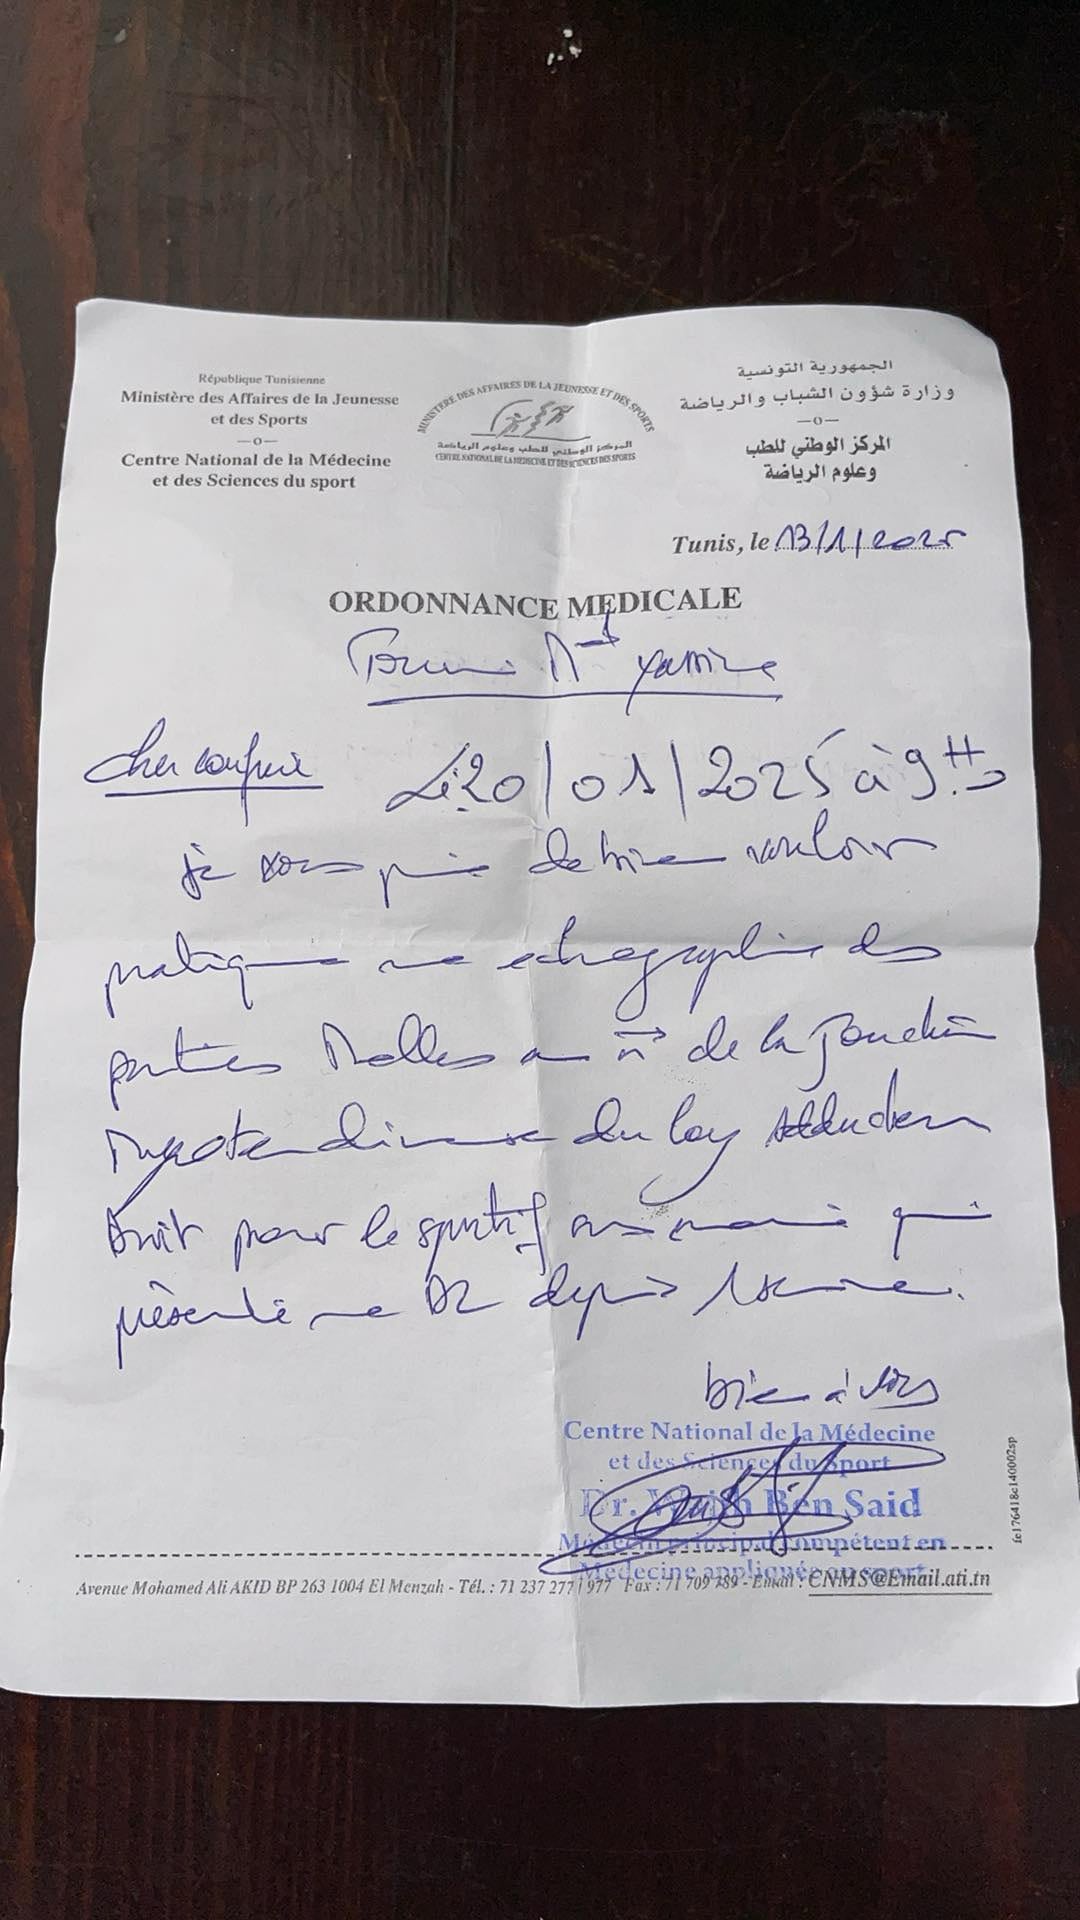 République Tunisienne
Ministère des Affaires de la Jeunesse
et des Sports
—o—
Centre National de la Médecine
et des Sciences du sport
MINISTERE DES AFFAIRES DE LA JEUNESSE ET DES SPORTS
المركز الوطني للطب وعلوم الرياضة
CENTRE NATIONAL DE LA MEDECINE ET DES SCIENCES DU SPORT
الجمهورية التونسية
وزارة شؤون الشباب والرياضة
—o—
المركز الوطني للطب
وعلوم الرياضة
Tunis, le 13/1/2025
ORDONNANCE MEDICALE
Med Yassine
Cher confrère
Le 20/01/2025 à 9H
je vous prie de bien vouloir
pratiquer une échographie des
parties Molles au de la Jonction
Myotendineuse du long Adducteur
Droit pour le sportif qui
présente une depuis 1 semaine.
bien à vous
Centre National de la Médecine
et des Sciences du Sport
Dr. Wajih Ben Said
Médecin principal compétent en
Médecine appliquée au sport
Avenue Mohamed Ali AKID BP 263 1004 El Menzah - Tél. : 71 237 277 / 977 Fax : 71 709 789 - Email : CNMS@Email.ati.tn